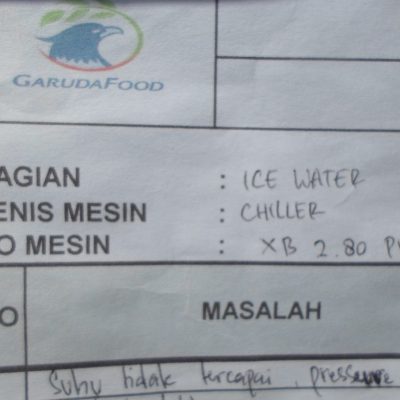 GARUDAFOOD
AGIAN : ICE WATER
ENIS MESIN : CHILLER
O MESIN : XB 2.80 P
O MASALAH
Suhu tidak tercapai, pressure